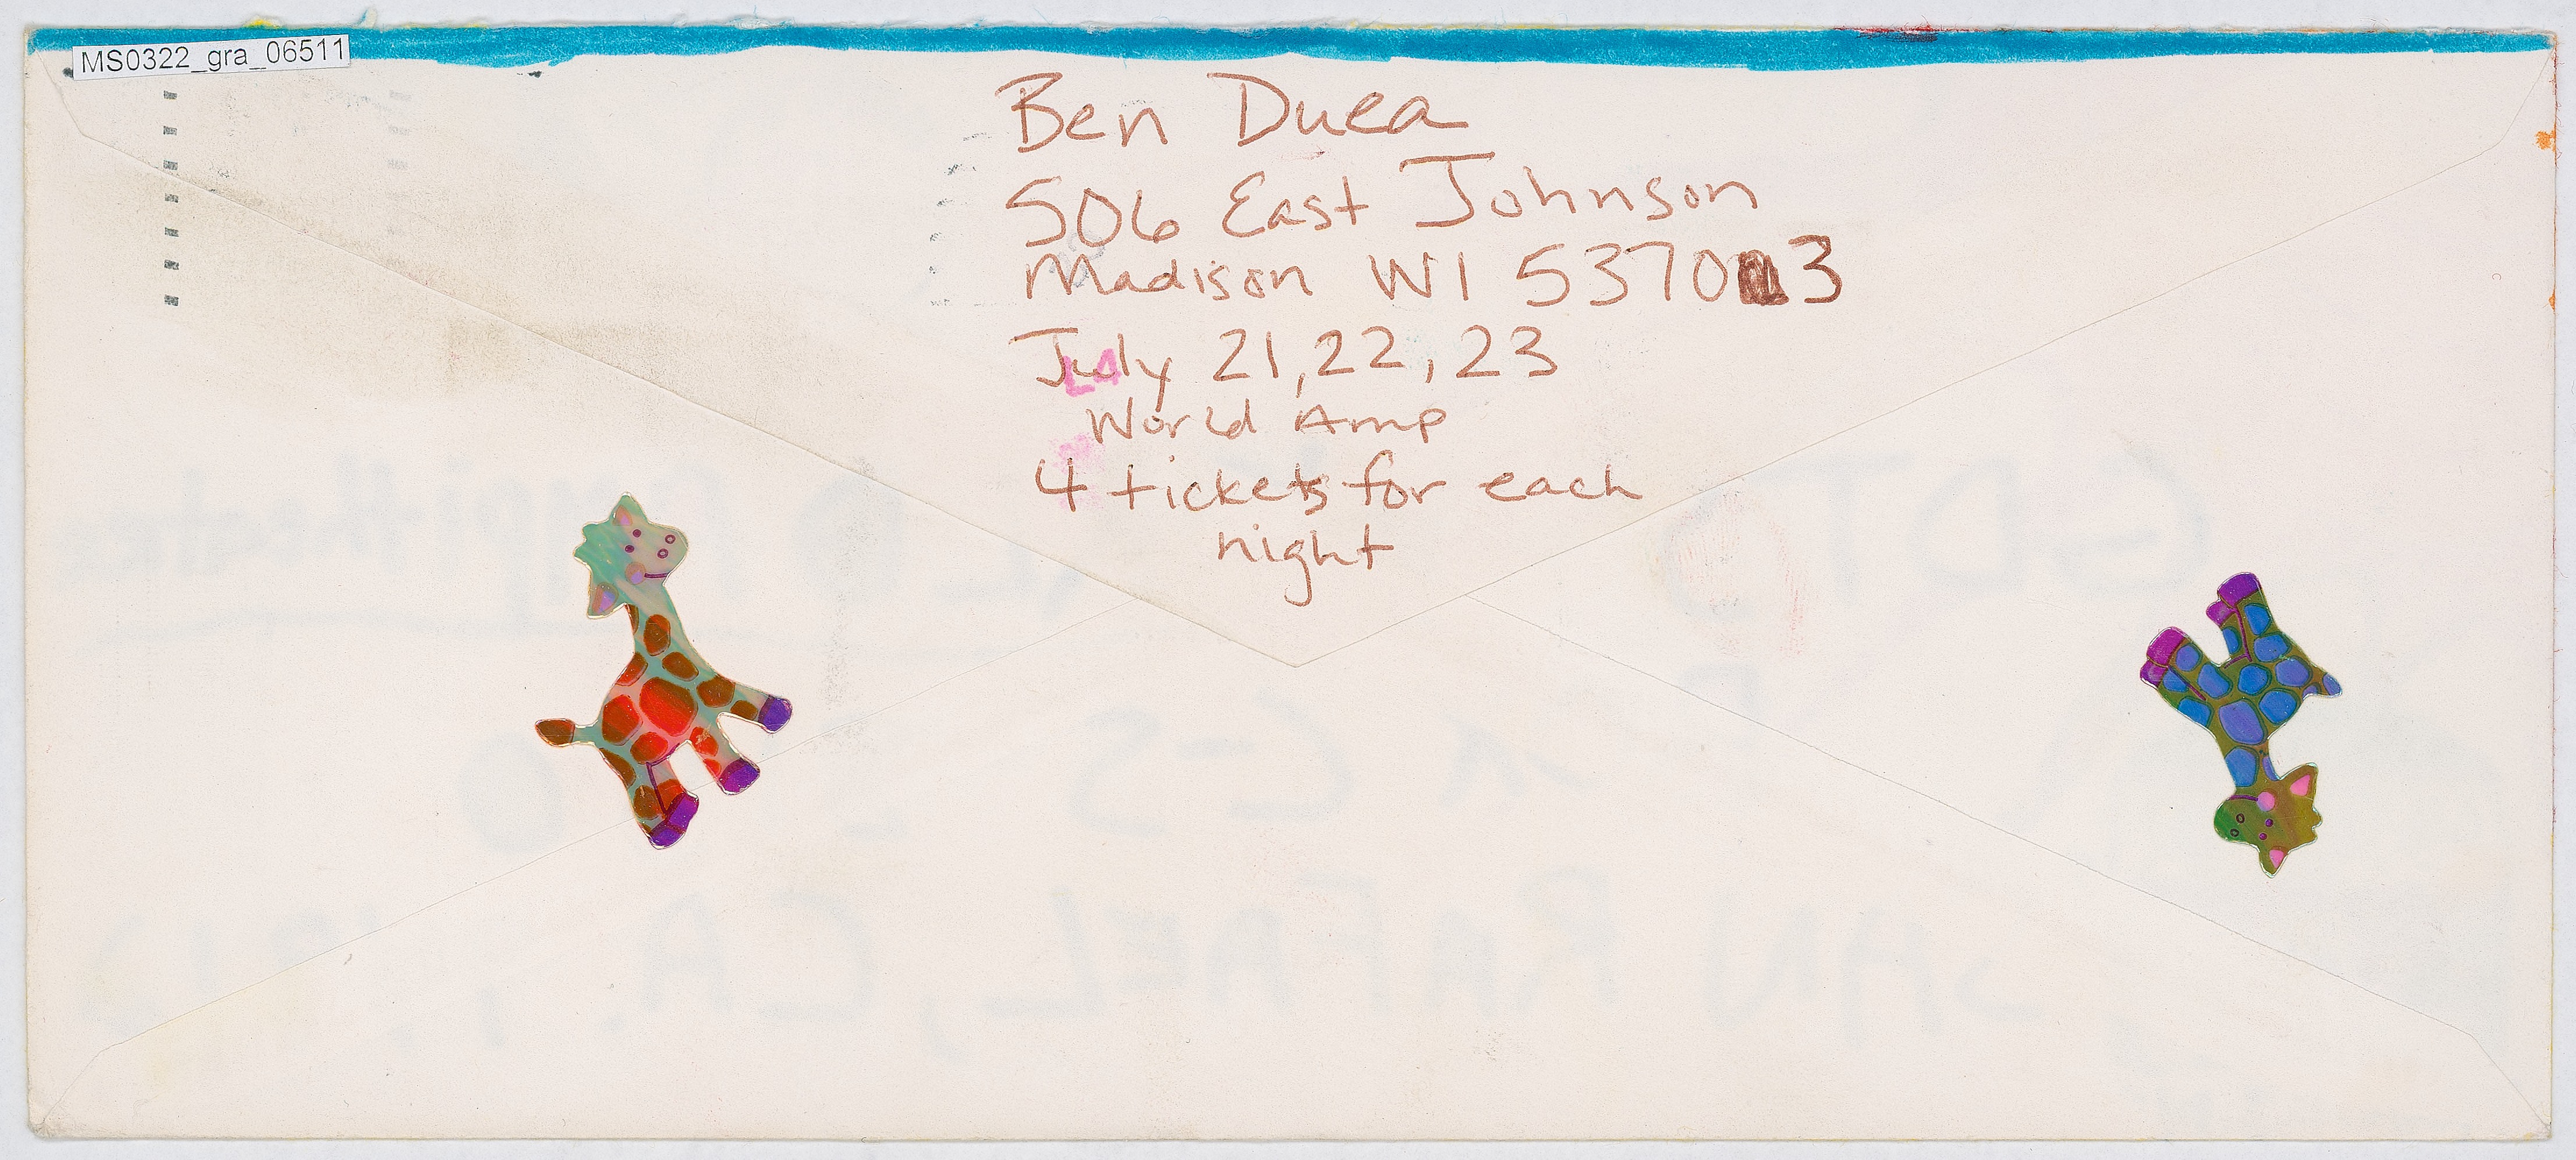 MS0322_gra_06511
Ben Duea
506 East Johnson
Madison WI 53703
July 21, 22, 23
L4
World Amp
4 tickets for each
night